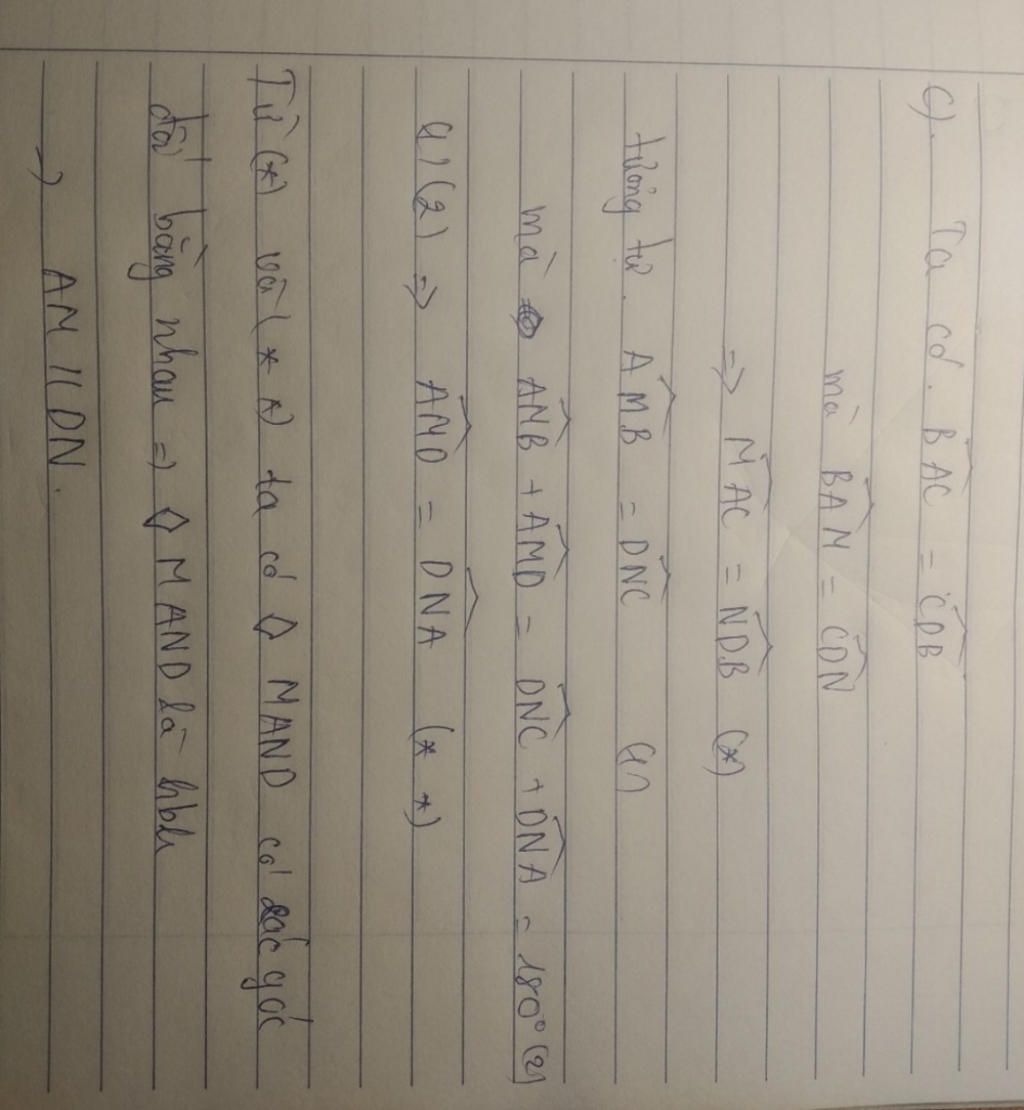 c). Ta có. BAC = CDB
mà BAM = CDN
=> MAC = NDB (*)
tương tự. AMB = DNC (1)
mà ANB + AMD = DNC + DNA = 180° (2)
(1) (2) => AMD = DNA (* *)
Từ (*) và (* *) ta có ◊ MAND có các góc
đối bằng nhau => ◊ MAND là hbh
→ AM // DN.